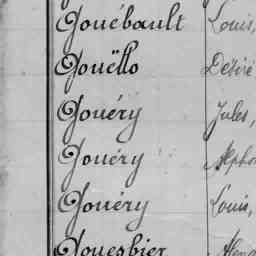 Gouébault Louis,
Gouëllo Désiré
Gouéry Jules,
Gouéry Alpho
Gouéry Louis,
Gouesbier